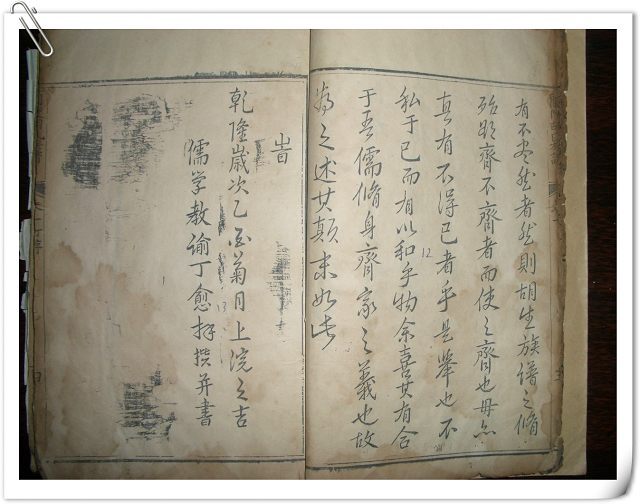 有不尽然者然则胡生族谱之脩
殆欲齊不齊者而使之齊也毋亦
真有不得已者乎是舉也不
私于己而有以和乎物余喜其有合
于吾儒脩身齊家之義也故
為之述其顛末如此
12
旹
乾隆歲次乙酉菊月上浣之吉
13
儒学教谕丁愈拜撰并書